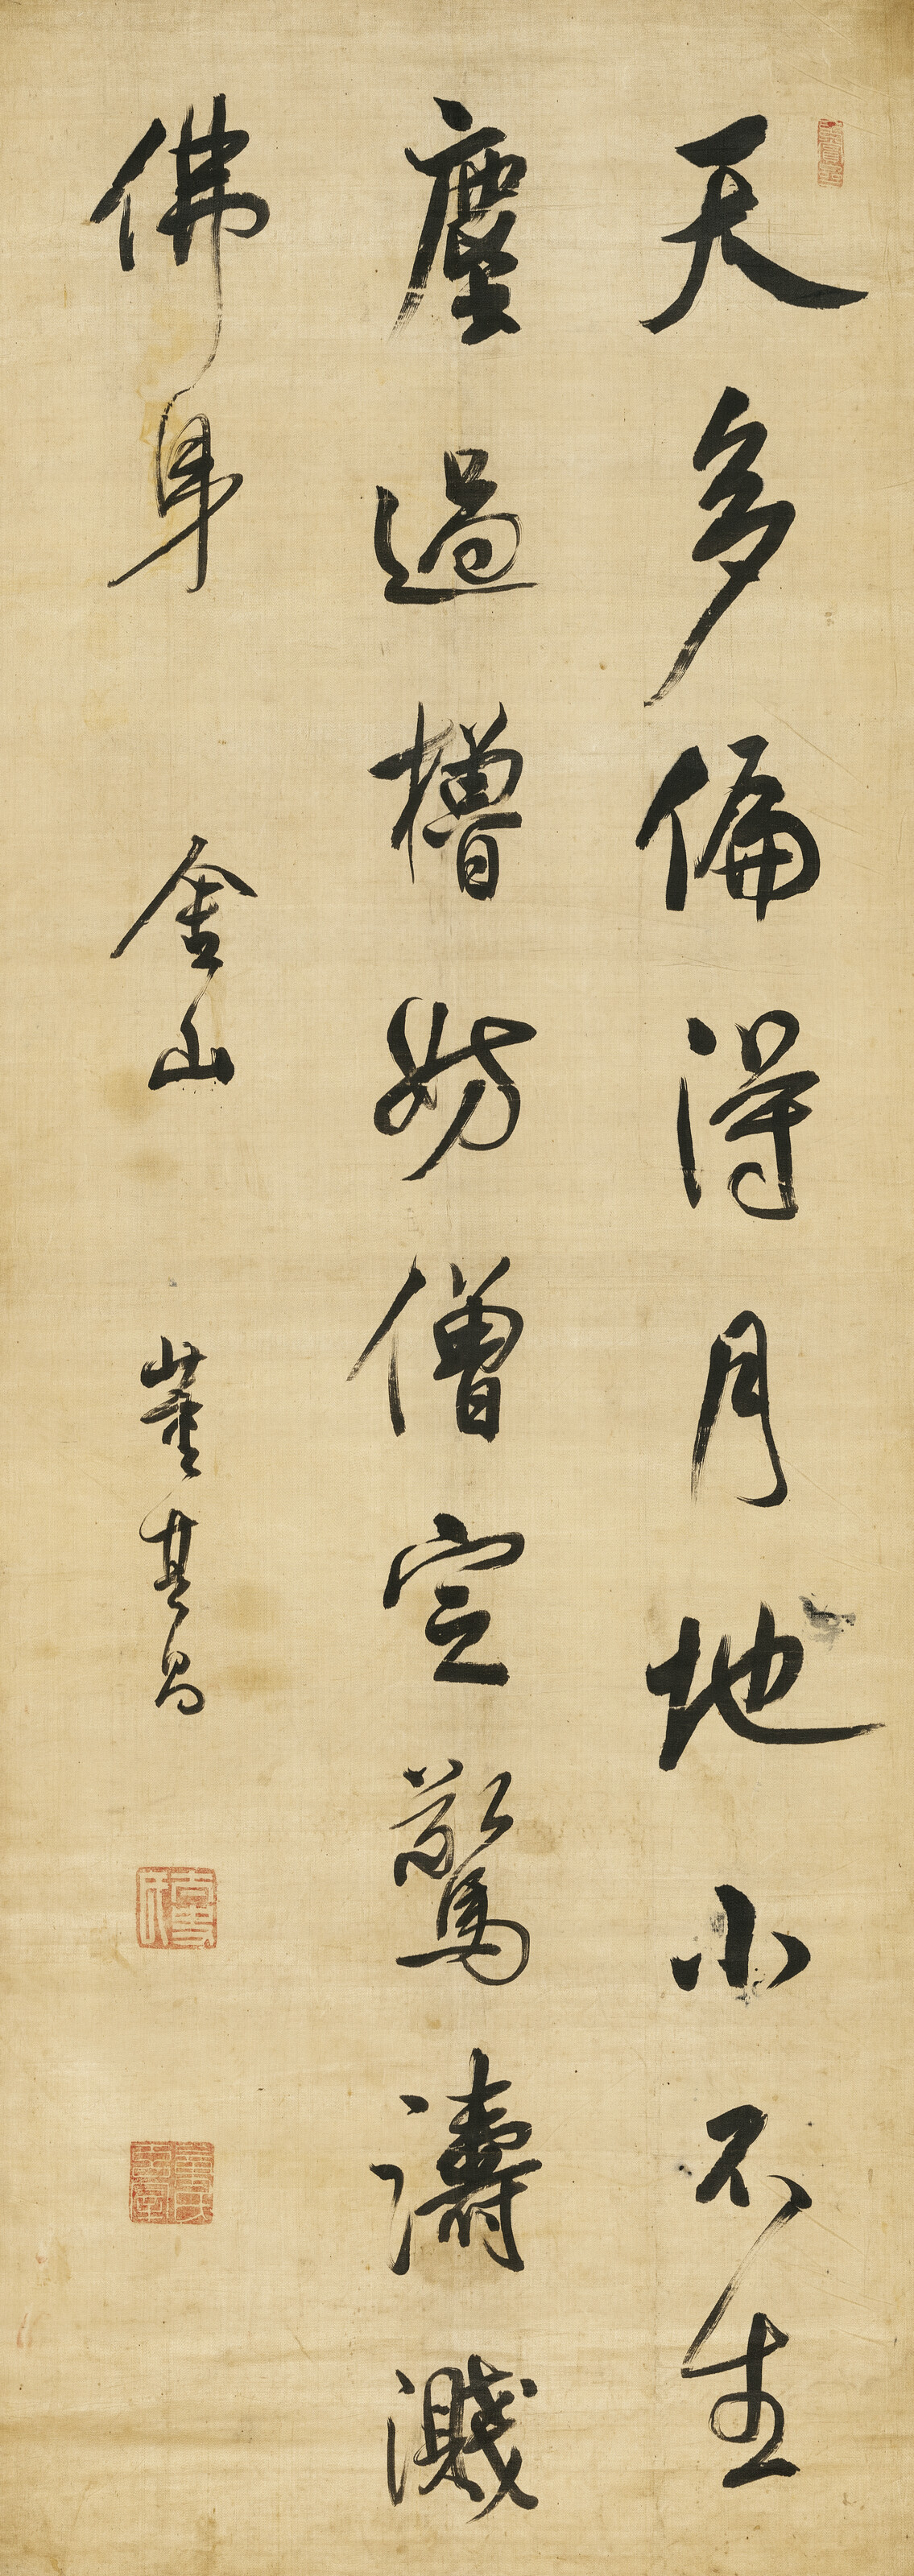 天多偏得月地小不生
塵過櫓妨僧定驚濤濺
佛身 金山 董其昌